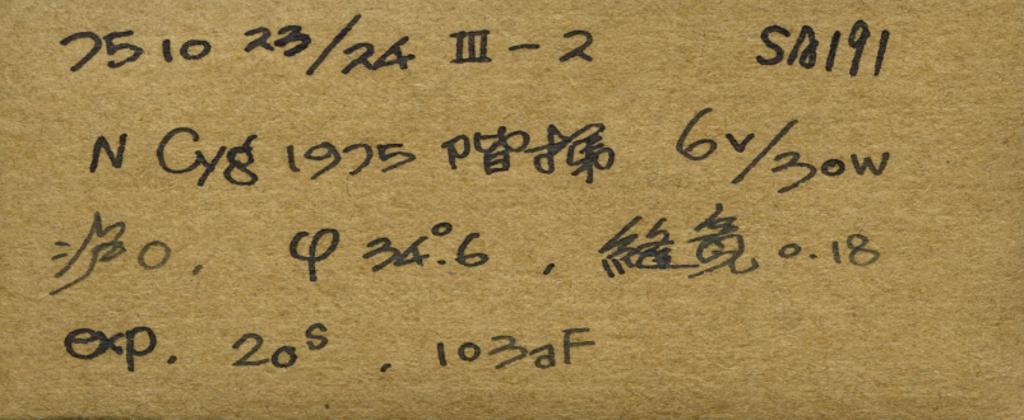 7510 23/24 III - 2 SA191
N Cyg 1975 階梯 6v/30w
沪0. φ 34°.6 , 縫寬 0.18
exp. 20s , 103aF